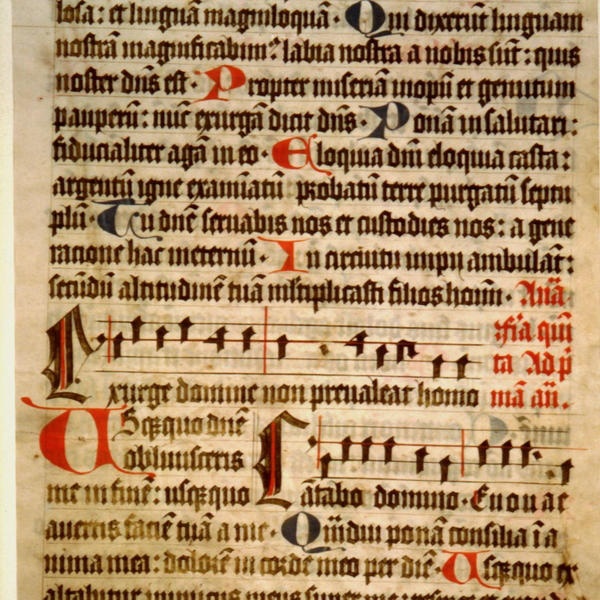 losa: et linguā magniloquā. Qui dixerūt linguam
nostrā magnificabim⁹ labia nostra a nobis sūt: quis
noster dn̄s est. Propter miseriā inopū et gemitum
pauperū: nūc exurgā dicit dn̄s. Ponā in salutari:
fiducialiter agā in eo. Eloquia dn̄i eloquia casta:
argentū igne examīatū probatū terre purgatū septu
plū. Tu dn̄e seruabis nos et custodies nos: a gene
racione hac ineternū. In circuitu impii ambulāt:
secūdū altitudinē tuā mltiplicasti filios hoīm. Anā
fīa quī
ta Ad p̄
mā an̄.
Exurge domine non preualeat homo
Vsq̄quo dn̄e
obliuisceris
me in finē: usq̄quo
Cātabo domino. Euouae
auertis faciē tuā a me. Qūdiu ponā consilia ī a
nima mea: dolorē in corde meo per diē. Vsq̄quo ex
altabitur inimicus meus super me: respice et exaudi